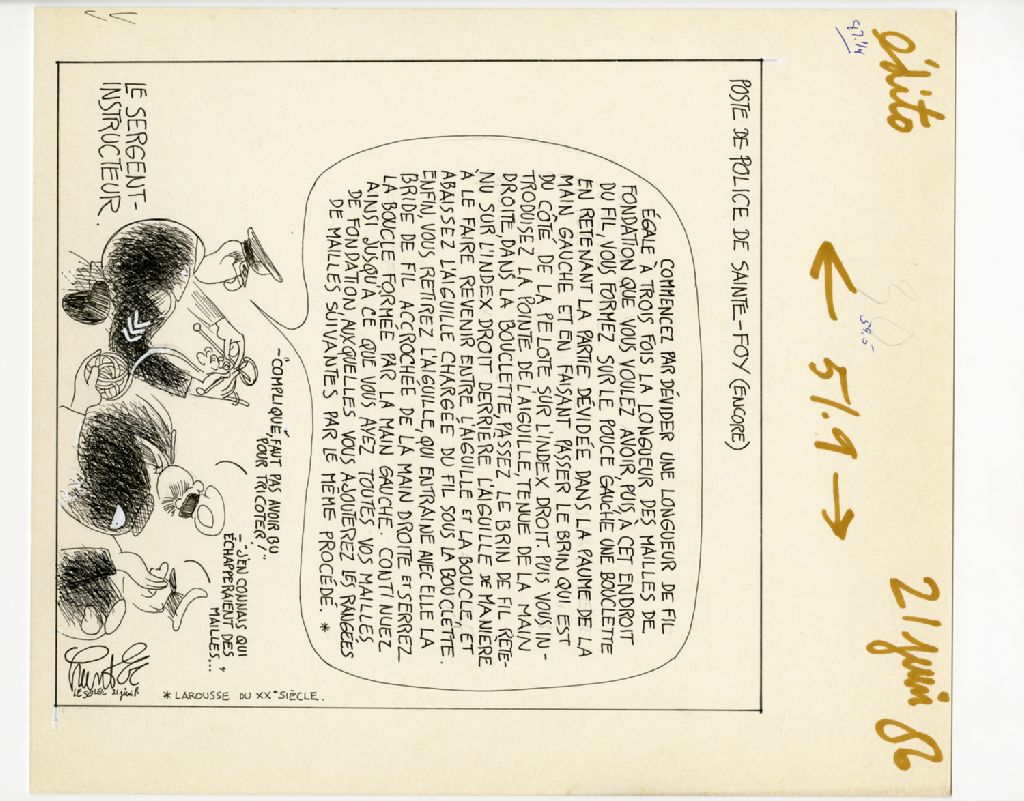 édito
21 juin 86
← 51.9 →
POSTE DE POLICE DE SAINTE-FOY (ENCORE)
COMMENCEZ PAR DÉVIDER UNE LONGUEUR DE FIL
ÉGALE À TROIS FOIS LA LONGUEUR DES MAILLES DE
FONDATION QUE VOUS VOULEZ AVOIR, PUIS, À CET ENDROIT
DU FIL, VOUS FORMEZ SUR LE POUCE GAUCHE UNE BOUCLETTE
EN RETENANT LA PARTIE DÉVIDÉE DANS LA PAUME DE LA
MAIN GAUCHE ET EN FAISANT PASSER LE BRIN QUI EST
DU CÔTÉ DE LA PELOTE SUR L'INDEX DROIT. PUIS VOUS IN-
TRODUISEZ LA POINTE DE L'AIGUILLE, TENUE DE LA MAIN
DROITE, DANS LA BOUCLETTE, PASSEZ LE BRIN DE FIL RETE-
NU SUR L'INDEX DROIT DERRIÈRE L'AIGUILLE DE MANIÈRE
À LE FAIRE REVENIR ENTRE L'AIGUILLE ET LA BOUCLE, ET
ABAISSEZ L'AIGUILLE CHARGÉE DU FIL SOUS LA BOUCLETTE.
ENFIN, VOUS RETIREZ L'AIGUILLE, QUI ENTRAÎNE AVEC ELLE LA
BRIDE DE FIL ACCROCHÉE DE LA MAIN DROITE ET SERREZ
LA BOUCLE FORMÉE PAR LA MAIN GAUCHE. CONTINUEZ
AINSI JUSQU'À CE QUE VOUS AYEZ TOUTES VOS MAILLES
DE FONDATION, AUXQUELLES VOUS AJOUTEREZ LES RANGÉES
DE MAILLES SUIVANTES PAR LE MÊME PROCÉDÉ. *
-"COMPLIQUÉ, FAUT PAS AVOIR BU
POUR TRICOTER!"
-"J'EN CONNAIS QUI
ÉCHAPPERAIENT DES
MAILLES...
LE SERGENT-
INSTRUCTEUR.
LE SOLEIL 21 juin 86
* LAROUSSE DU XXe SIÈCLE.